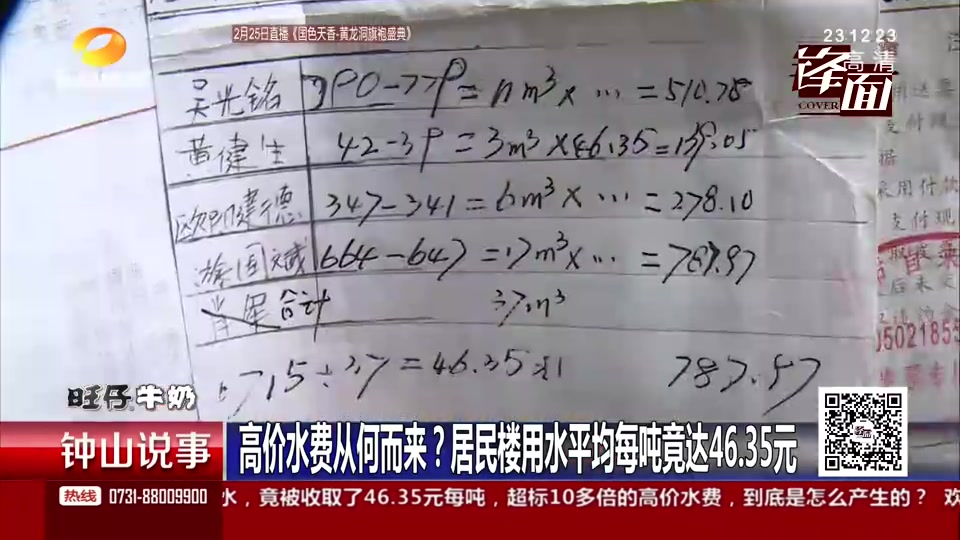 2月25日直播《国色天香-黄龙洞旗袍盛典》
23 12 23
高清
锋面
COVER
吴光铭 790-779=11m³×…=510.78
黄健生 42-39=3m³×46.35=139.05
欧阳建德 347-341=6m³×…=278.10
游国斌 664-647=17m³×…=787.97
合计 37m³
1715÷37=46.35元
787.97
用送票
支付现
据
采用付款
支付现
05021855
旺仔牛奶
钟山说事
高价水费从何而来？居民楼用水平均每吨竟达46.35元
热线 0731-88009900 水，竟被收取了46.35元每吨，超标10多倍的高价水费，到底是怎么产生的？ 欢